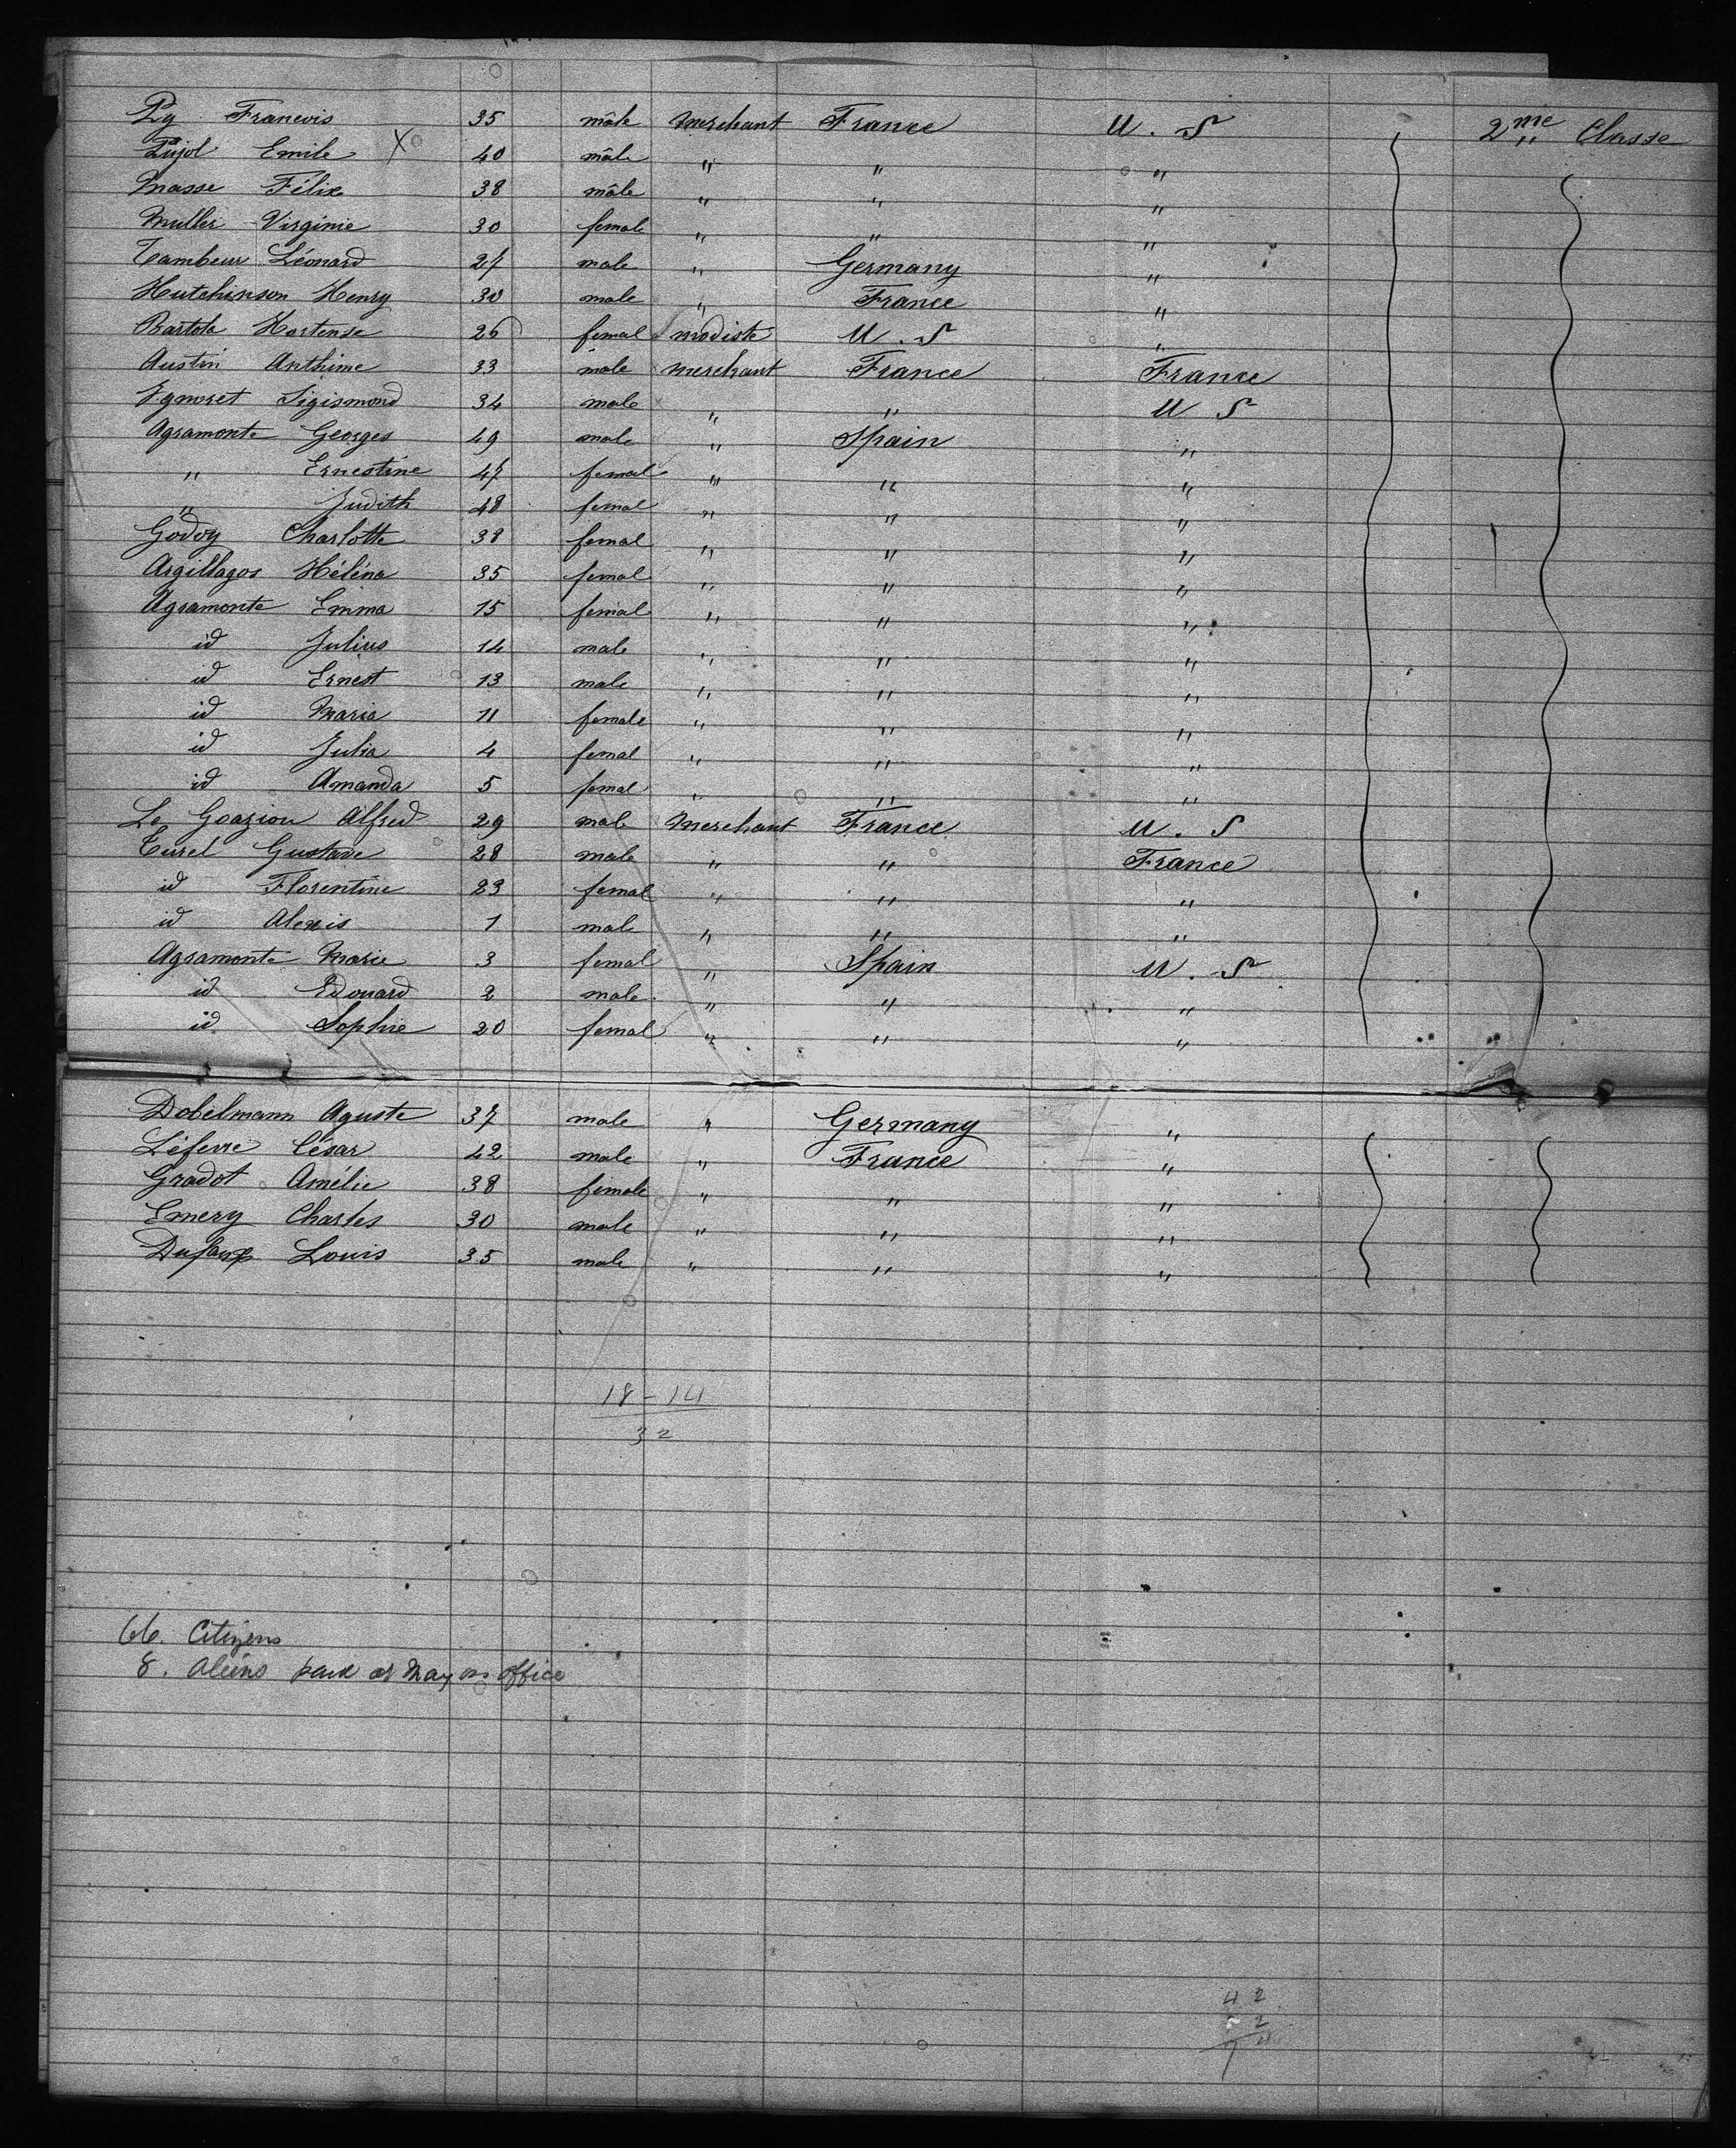 Py Francois 35 mâle Merchant France U. S 2me Classe
Pujol Emile X 40 mâle " " " "
Masse Félix 38 mâle " " "
Muller Virginie 30 female " " "
Tambeur Léonard 27 male " Germany "
Hutchinson Henry 30 male " France "
Bartola Hortense 26 femal modiste U. S "
Austin Anthime 33 male merchant France France
Sigismond 34 male " " U S
Agramonte Georges 49 male " Spain "
" Ernestine 47 femal " " "
" Judith 48 femal " " "
Godoy Charlotte 38 femal " " "
Argillagos Héléna 35 femal " " "
Agramonte Emma 15 femal " " "
id Julius 14 male " " "
id Ernest 13 male " " "
id Maria 11 female " " "
id Julia 4 femal " " "
id Amanda 5 femal " " "
Le Goaziou Alfred 29 male Merchant France U. S
Turel Gustave 28 male " " France
id Florentine 23 femal " " "
id Alexis 1 male " " "
Agramonte Marie 3 femal " Spain U. S
id Edouard 2 male " " "
id Sophie 20 femal " " "
Dobelmann Aguste 37 male " Germany "
Léfevre César 42 male " France "
Gradot Amélie 38 female " " "
Emery Charles 30 male " " "
Dufaux Louis 35 male " " "
18-14
32
66. Citizens
8. Aleins paid at Mayors office
42